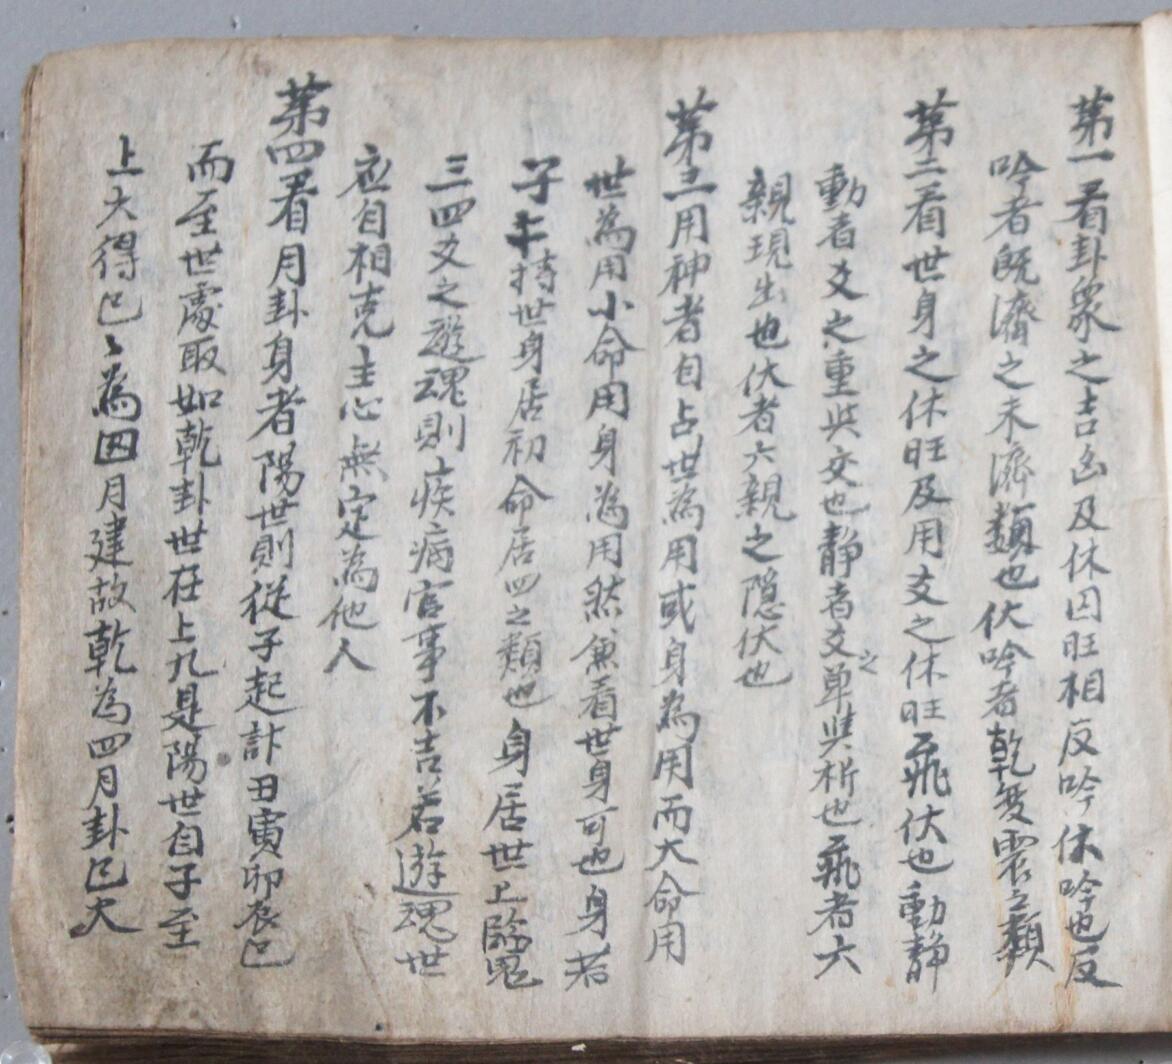 第一看卦象之吉凶及休囚旺相反吟休吟也反
吟者既濟之未濟類也伏吟者乾変震之類
第二看世身之休旺及用爻之休旺飛伏也動静
動者爻之重與交也静者爻之單與柝也飛者六
親現出也伏者六親之隠伏也
第三用神者自占世為用或身為用而大命用
世為用小命用身為用然兼看世身可也身若
子午持世身居初命居四之類也身居世上臨鬼
三四爻之遊魂則疾病官事不吉若遊魂世
应自相克主心無定為他人
第四看月卦身者陽世則從子起計丑寅卯辰巳
而至世處取如乾卦世在上九是陽世自子至
上大得巳〻為四月建故乾為四月卦巳火